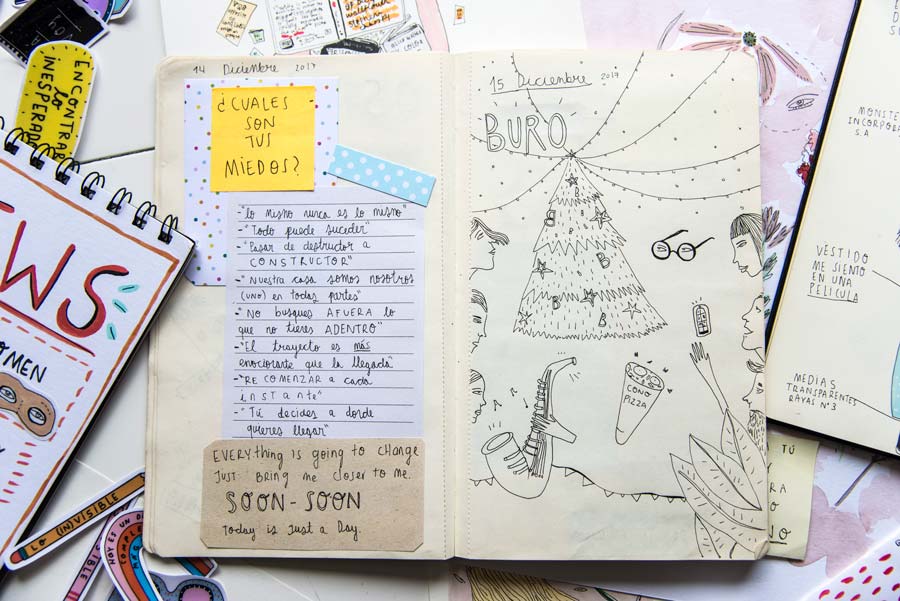 14 Diciembre 2017
¿CUALES
SON
TUS
MIEDOS?
-"lo mismo nunca es lo mismo"
-"Todo puede suceder"
-"Pasar de destructor a
CONSTRUCTOR"
-"Nuestra casa somos nosotros
(uno) en todas partes"
-"No busques AFUERA lo
que no tienes ADENTRO"
-"El trayecto es más
emocionante que la llegada"
-"RE COMENZAR a cada
instante"
-"Tú decides a donde
quieres llegar"
EVERYthing is going to change
JUST BRING me closer to me.
SOON-SOON
Today is Just a Day.
15 Diciembre 2017
BURO
B
B
B
B
B
CONO
PIZZA
ENCONTRAR
lo
INESPERADO
EWS
OMEN
LO (IN)VISIBLE
HOY ES UN DÍA
MONSTE
INCORPORA
S.A
VESTIDO
ME SIENTO
EN UNA
PELICULA
MEDIAS
TRANSPARENTES
RAYAS Nº3
TÚ